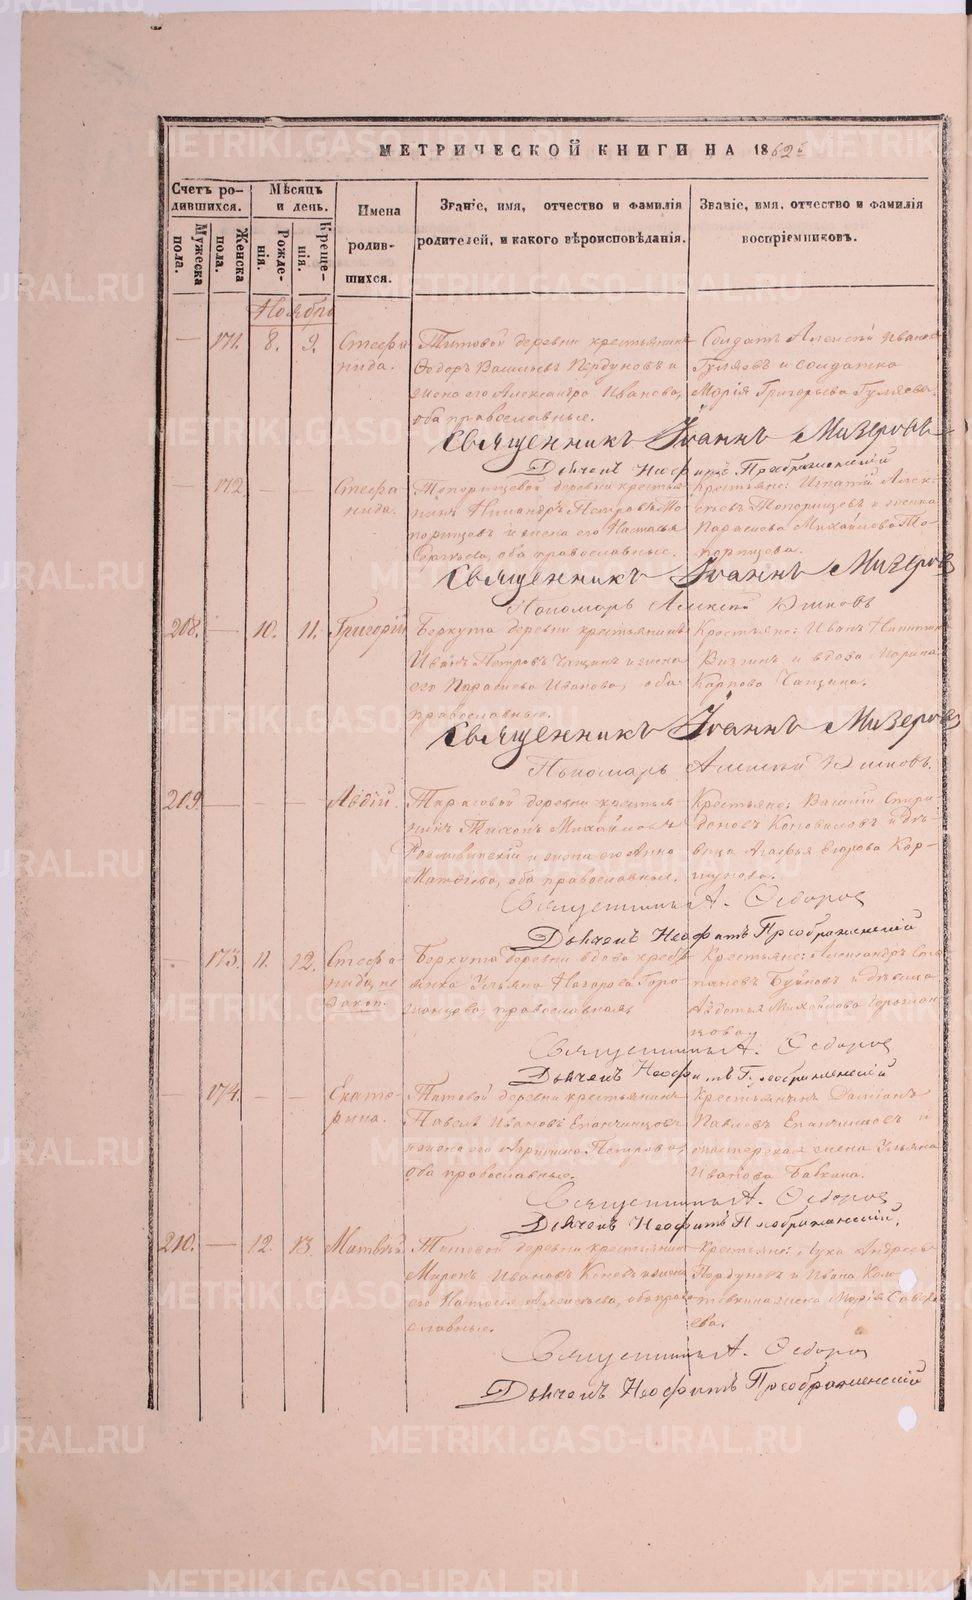 МЕТРИЧЕСКОЙ КНИГИ НА 1862 г
Счетъ ро-
дившихся.
Мѣсяцъ
и день.
Имена
родив-
шихся.
Званіе, имя, отчество и фамилія
родителей, и какого вѣроисповѣданія.
Званіе, имя, отчество и фамилія
воспріемниковъ.
Мужеска
пола.
Женска
пола.
Рожде-
нія.
Креще-
нія.
Ноябрь
— 171. 8. 9. Стефа-
нида.
Титовой деревни крестьянинъ
Ѳедоръ Васильевъ Пердуновъ и
жена его Александра Иванова,
оба православные.
Солдатъ Алексѣй Иванов
Гуляевъ и солдатка
Марія Григорьева Гуляева.
Священникъ Іоаннъ Мизеровъ
Дьячекъ Неофитъ Преображенскій
— 172 — — Стефа-
нида.
Топорищевой деревни крестья-
нинъ Никандръ Петровъ То-
порищевъ и жена его Настасья
оба православные.
Крестьяне: Игнатій Алек-
сѣевъ Топорищевъ и женка
Парасковья Михайлова То-
порищева.
Священникъ Іоаннъ Мизеров
Пономарь Алексѣй
208. — 10. 11. Григорій
Беркута деревни крестьянинъ
Иванъ Петровъ Чащинъ и жена
его Парасковья Иванова, оба
православные.
Крестьяне: Иванъ Никитинъ
и вдова Марина
Карпова Чащина.
Священникъ Іоаннъ Мизеров
Пономарь Алексѣй
209 — — — Авдій.
Тарасовой деревни крестья-
нинъ Тихонъ Михайловъ
и жена его Анна
Матѳѣева, оба православные.
Крестьяне: Василій Спири-
доновъ Коноваловъ и дѣ-
вица Агафья Егорова Кор-
шунова.
Священникъ А. Ѳедоров
Дьячекъ Неофитъ Преображенскій
— 173. 11. 12. Стефа-
нида, не
закон.
Беркута деревни вдова крест-
янка Ульяна Назарова Горо-
жанцова, православная,
Крестьяне: Александръ Сте-
пановъ Буйновъ и дѣвица
Авдотья Михайлова Горожан-
цова
Священникъ А. Ѳедоров
Дьячекъ Неофитъ Преображенскій
— 174. — — Екате-
рина.
Титовой деревни крестьянинъ
Павелъ Ивановъ Епанчинцовъ
и жена его Агрипина Петрова,
оба православные.
Крестьянинъ Даміанъ
Павловъ Епанчинцовъ и
мастерская жена Ульяна
Иванова Бабкина.
Священникъ А. Ѳедоров
Дьячекъ Неофитъ Преображенскій.
210. — 12. 13. Матвѣй
Титовой деревни крестьянин
Миронъ Ивановъ Коневъ и жена
его Наталья Алексѣева, оба право-
славные.
Крестьяне: Лука Андреевъ
Пердуновъ и Ивана
жена Марія Савель-
ева.
Священникъ А. Ѳедоров
Дьячекъ Неофитъ Преображенскій
METRIKI.GASO-URAL.RU